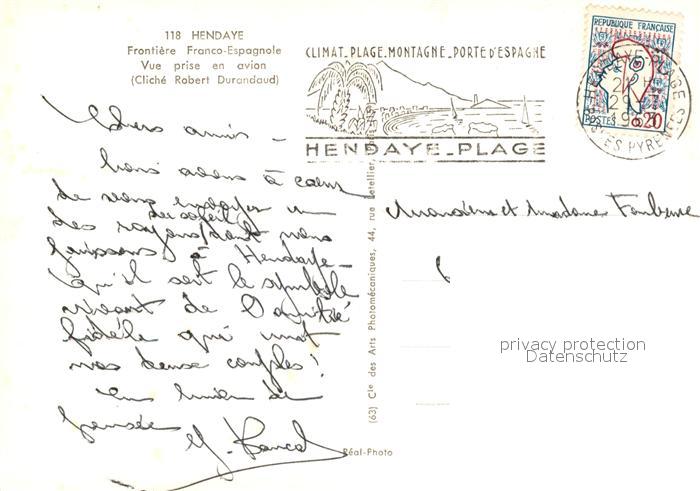 118 HENDAYE
Frontière Franco-Espagnole
Vue prise en avion
(Cliché Robert Durandaud)
CLIMAT_PLAGE_MONTAGNE_PORTE D'ESPAGNE
HENDAYE_PLAGE
REPUBLIQUE FRANÇAISE
POSTES 0,20
HENDAYE PLAGE
PYRENEES
Chers amis -
Nous avons à cœur
de vous envoyer un
des rayons du soleil dont nous
jouissons à Hendaye -
qu'il soit le symbole
vivant de l'amitié
fidèle qui unit
nos deux couples !
en de
pensée
Monsieur et Madame
(63) Cie des Arts Photomécaniques, 44, rue Letellier,
Réal-Photo
privacy protection
Datenschutz